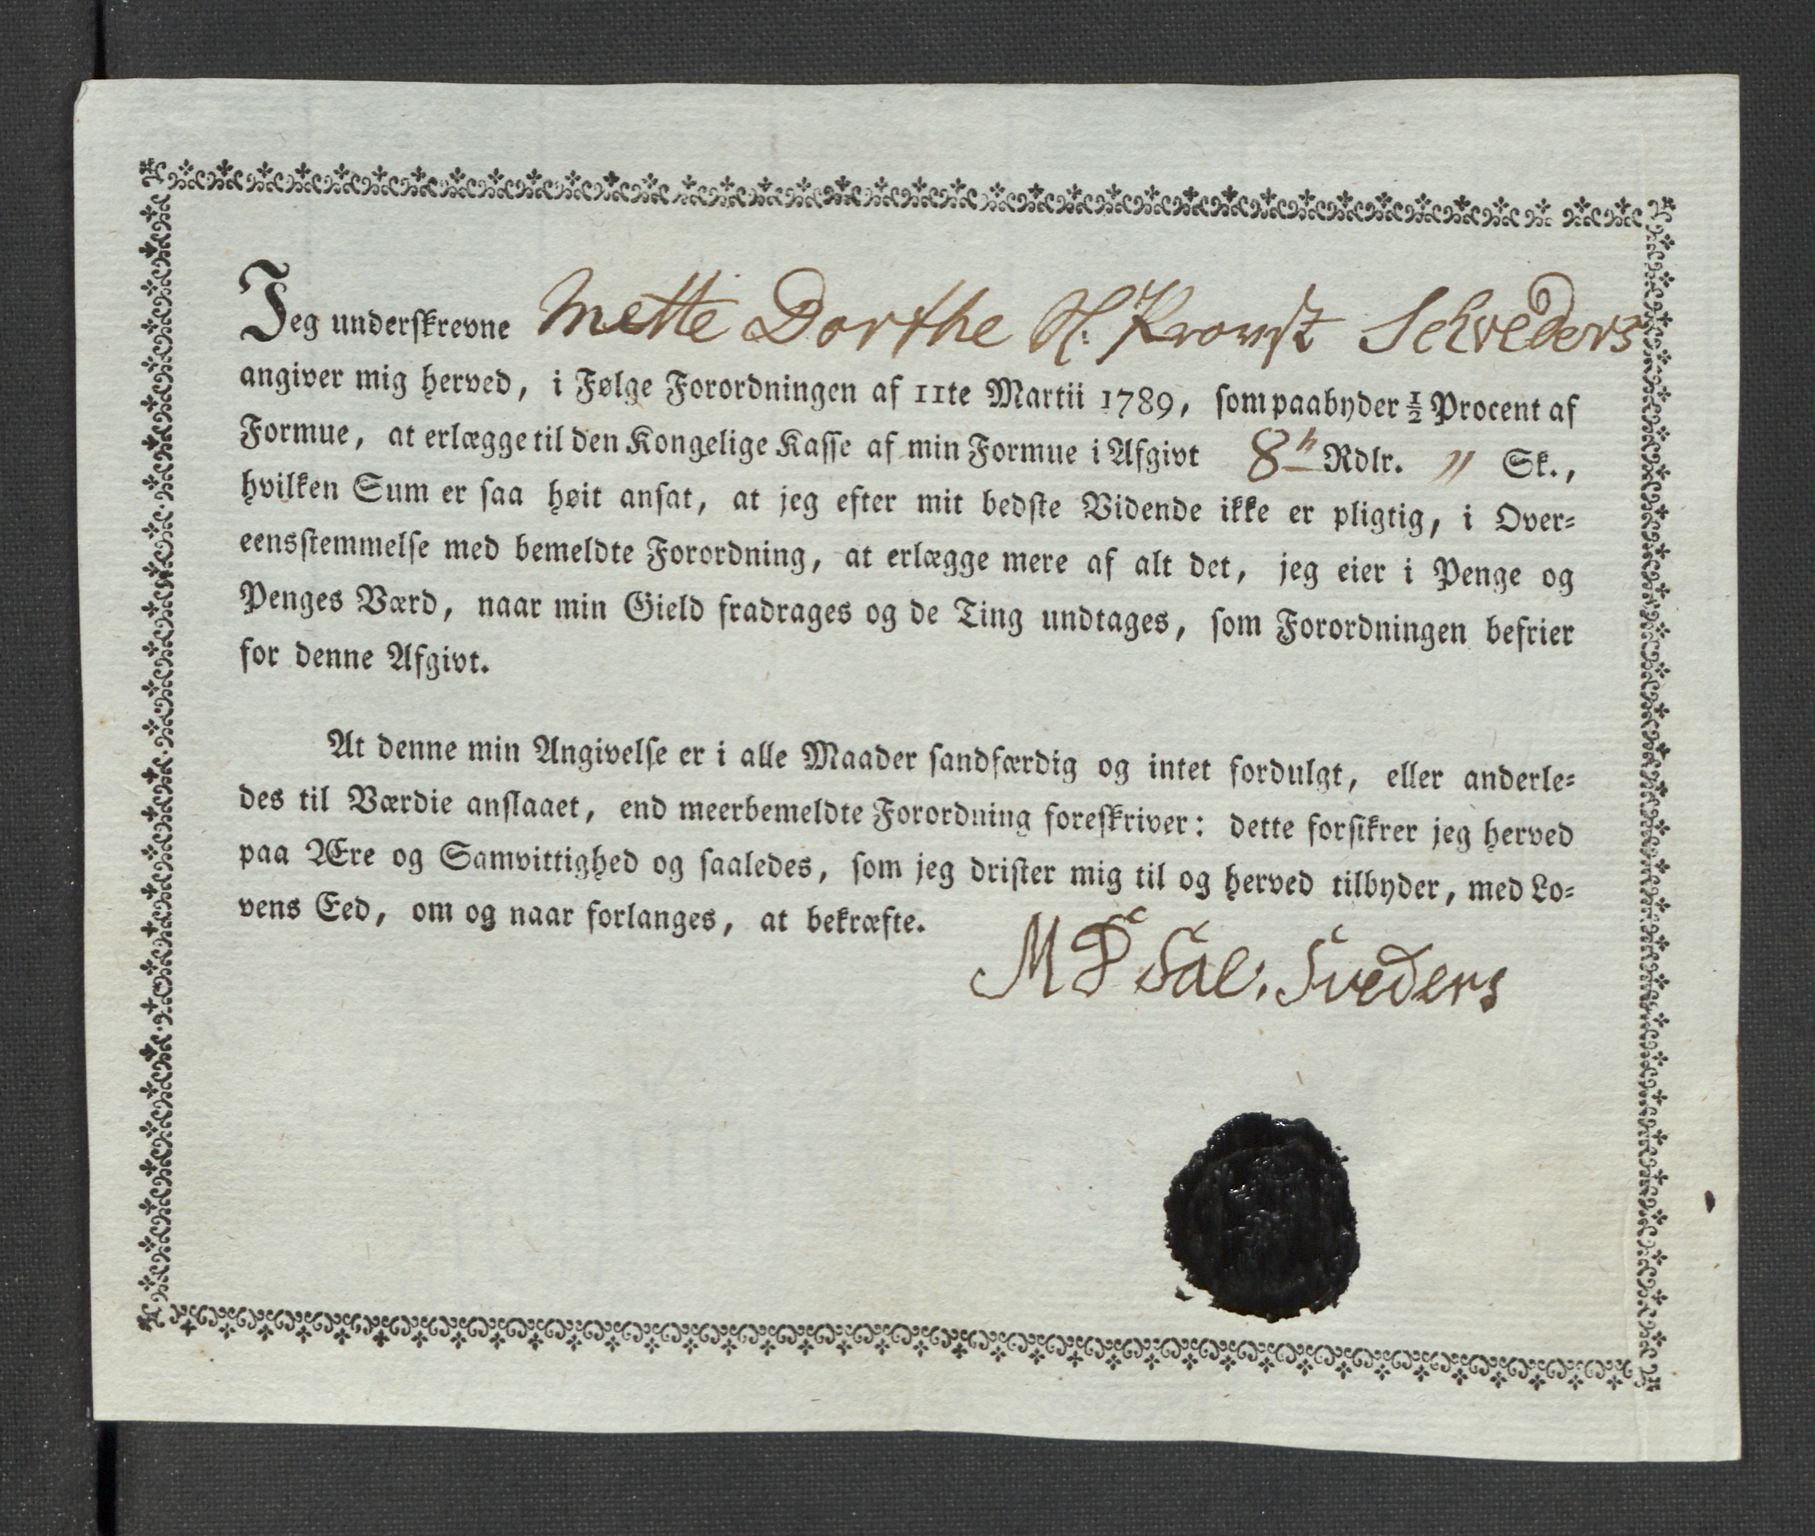 Jeg underskrevne Mette Dorthe H: Provst Schveders
angiver mig herved, i Følge Forordningen af 11te Martii 1789, som paabyder ½ Procent af
Formue, at erlægge til den Kongelige Kasse af min Formue i Afgivt 8 Rdlr. " Sk.,
hvilken Sum er saa høit ansat, at jeg efter mit bedste Vidende ikke er pligtig, i Over-
eensstemmelse med bemeldte Forordning, at erlægge mere af alt det, jeg eier i Penge og
Penges Værd, naar min Gield fradrages og de Ting undtages, som Forordningen befrier
for denne Afgivt.
At denne min Angivelse er i alle Maader sandfærdig og intet fordulgt, eller anderle-
des til Værdie anslaaet, end meerbemeldte Forordning foreskriver: dette forsikrer jeg herved
paa Ære og Samvittighed og saaledes, som jeg drister mig til og herved tilbyder, med Lo-
vens Eed, om og naar forlanges, at bekræfte.
M D Sal. Sveders